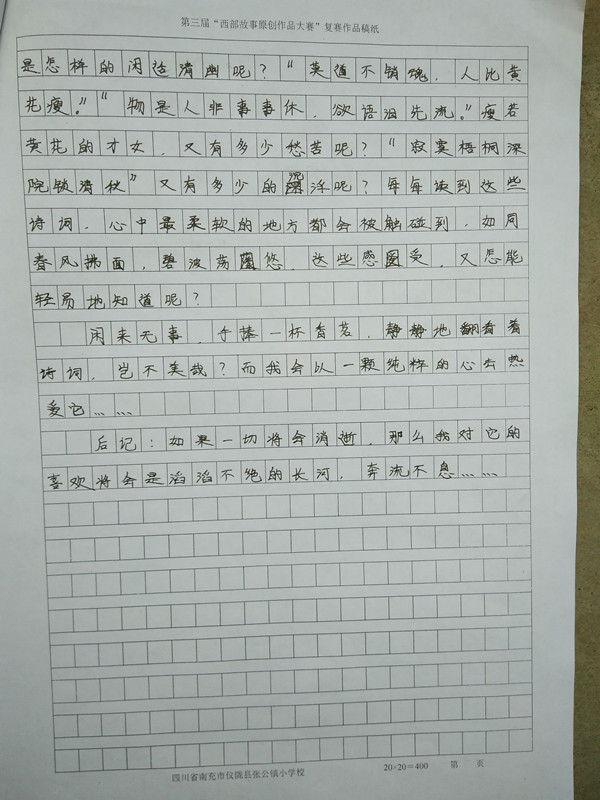 第三届“西部故事原创作品大赛”复赛作品稿纸
是怎样的闲适清幽呢？“莫道不销魂，人比黄
花瘦。”“物是人非事事休，欲语泪先流。”瘦若
黄花的才女，又有多少愁苦呢？“寂寞梧桐深
院锁清秋”又有多少的深浮呢？每每读到这些
诗词，心中最柔软的地方都会被触碰到，如同
春风拂面，碧波荡悠，这些感受，又怎能
轻易地知道呢？
闲来无事，手捧一杯香茗，静静地翻看着
诗词，岂不美哉？而我会以一颗纯粹的心去热
爱它……
后记：如果一切将会消逝，那么我对它的
喜欢将会是滔滔不绝的长河，奔流不息……
四川省南充市仪陇县张公镇小学校
20×20=400
第 页